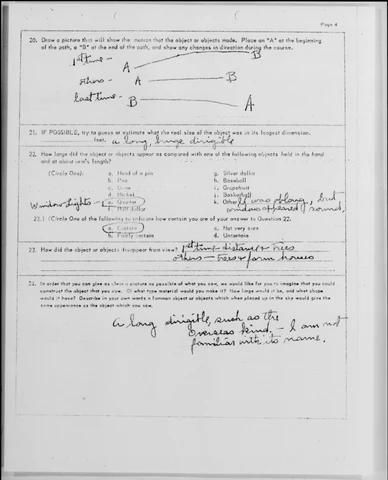 Page 4
20. Draw a picture that will show the motion that the object or objects made. Place an "A" at the beginning
of the path, a "B" at the end of the path, and show any changes in direction during the course.
1st time - A B
others - A B
last time - B A
21. IF POSSIBLE, try to guess or estimate what the real size of the object was in its longest dimension.
feet. a long, huge dirigible
22. How large did the object or objects appear as compared with one of the following objects held in the hand
and at about arm's length?
(Circle One): a. Head of a pin g. Silver dollar
b. Pea h. Baseball
c. Dime i. Grapefruit
d. Nickel j. Basketball
Window lights - e. Quarter k. Other It was oblong, but
f. Half dollar windows appeared round.
22.1 (Circle One of the following to indicate how certain you are of your answer to Question 22.
a. Certain c. Not very sure
b. Fairly certain d. Uncertain
23. How did the object or objects disappear from view? 1st time - distance & trees
others - trees & farm houses
24. In order that you can give as clear a picture as possible of what you saw, we would like for you to imagine that you could
construct the object that you saw. Of what type material would you make it? How large would it be, and what shape
would it have? Describe in your own words a common object or objects which when placed up in the sky would give the
same appearance as the object which you saw.
a long dirigible, such as the
overseas kind, - I am not
familiar with its name.